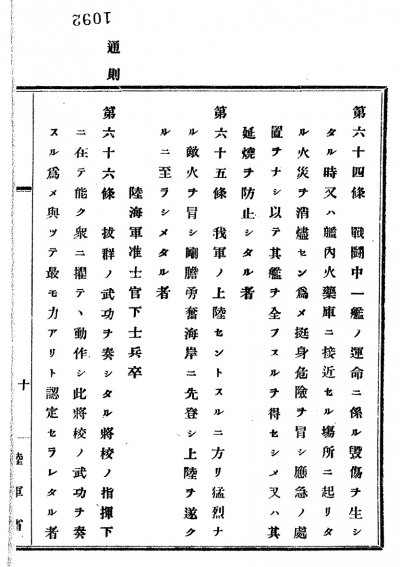 1092
通則
第六十四條 戰鬪中一艦ノ運命ニ係ル毀傷ヲ生シ
タル時又ハ艦內火藥庫ニ接近セル塲所ニ起リタ
ル火災ヲ消燼セン爲メ挺身危險ヲ冒シ應急ノ處
置ヲナシ以テ其艦ヲ全フスルヲ得セシメ又ハ其
延燒ヲ防止シタル者
第六十五條 我軍ノ上陸セントスルニ方リ猛烈ナ
ル敵火ヲ冒シ剛膽勇奮海岸ニ先登シ上陸ヲ遂ク
ルニ至ラシメタル者
陸海軍准士官下士兵卒
第六十六條 拔群ノ武功ヲ奏シタル將校ノ指揮下
ニ在テ能ク衆ニ擢テヽ動作シ此將校ノ武功ヲ奏
スル爲メ與ツテ最モ力アリト認定セラレタル者
十
陸軍省